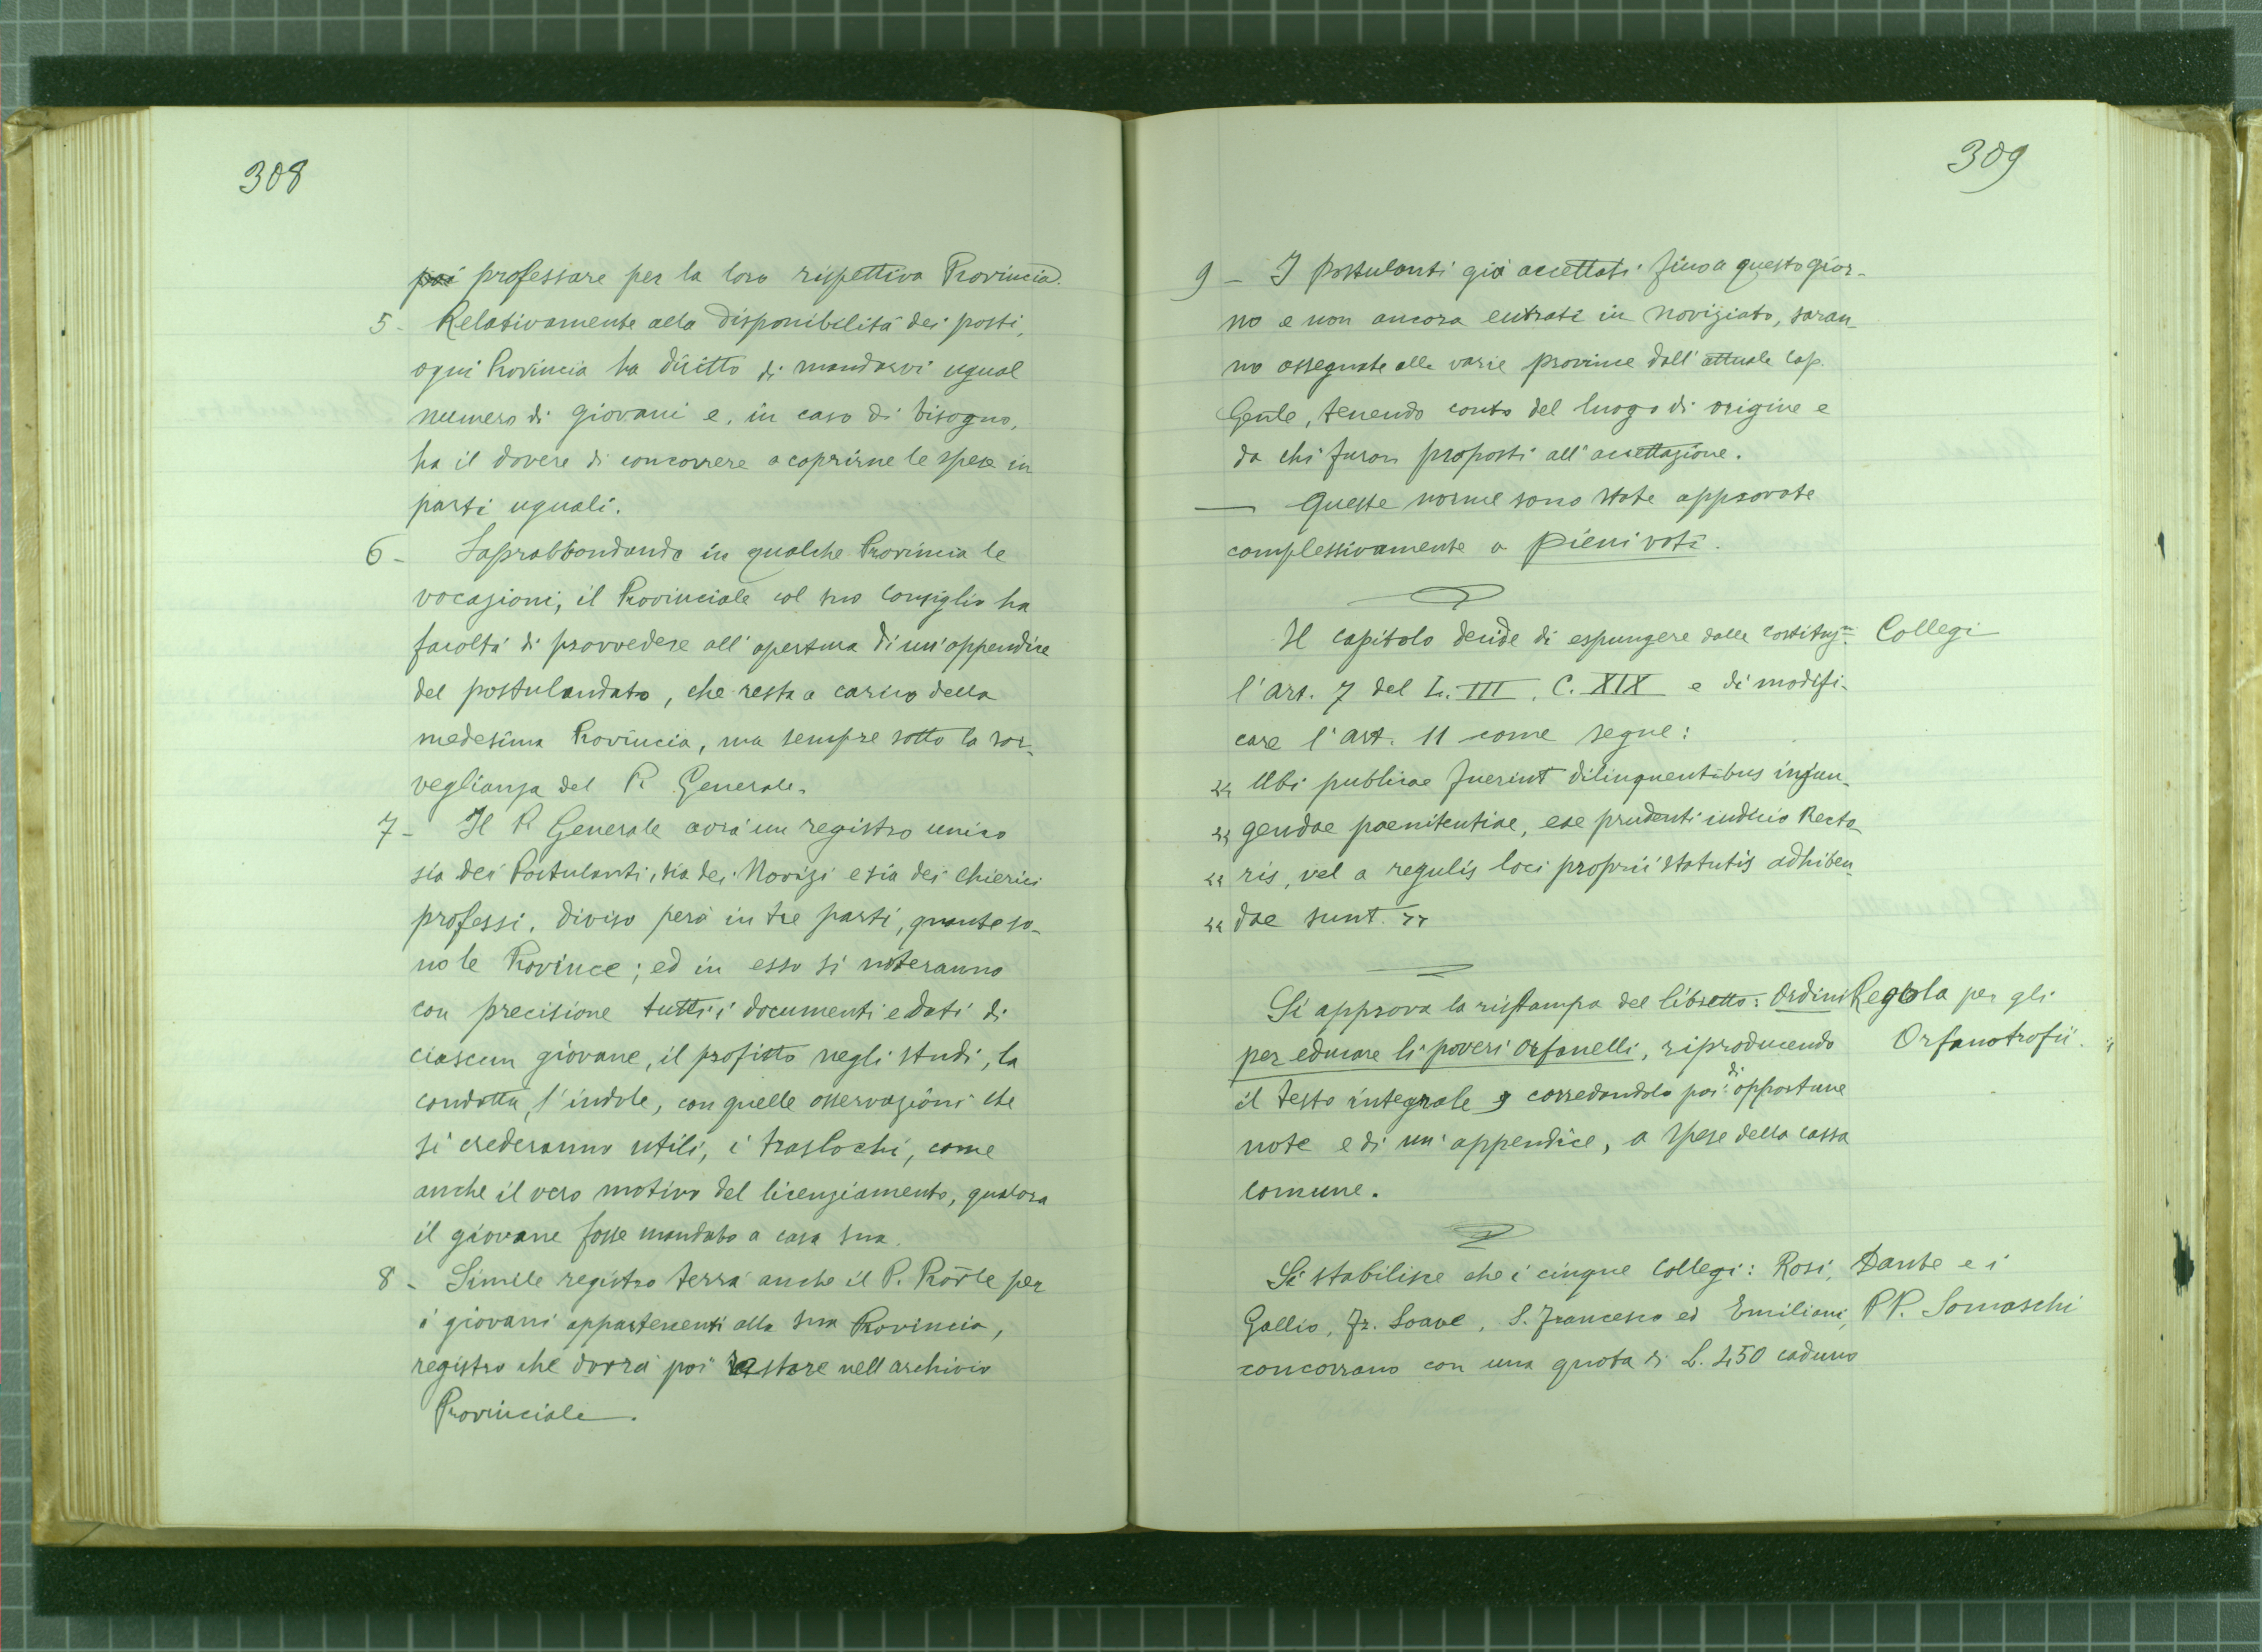 308
poi professare per la loro rispettiva Provincia.
5- Relativamente alla disponibilità dei posti,
ogni Provincia ha diritto di mandarvi ugual
numero di giovani e, in caso di bisogno,
ha il dovere di concorrere a coprirne le spese in
parti uguali.
6- Soprabbondando in qualche Provincia le
vocazioni, il Provinciale col suo Consiglio ha
facoltà di provvedere all'apertura di un'appendice
del postulandato, che resta a carico della
medesima Provincia, ma sempre sotto la sor-
veglianza del P. Generale.
7- Il P. Generale avrà un registro unico
sia dei Postulanti, sia dei Novizi e sia dei Chierici
professi, diviso però in tre parti, quante so-
no le Province; ed in esso si noteranno
con precisione tutti i documenti e dati di
ciascun giovane, il profitto negli studi, la
condotta, l'indole, con quelle osservazioni che
si crederanno utili, i traslochi, come
anche il vero motivo del licenziamento, qualora
il giovane fosse mandato a casa sua.
8- Simile registro terrà anche il P. Prov̄le per
i giovani appartenenti alla sua Provincia,
registro che dovrà poi restare nell'archivio
Provinciale.
309
9- I postulanti già accettati fino a questo gior-
no e non ancora entrati in noviziato, saran-
no assegnati alle varie province dall'attuale Cap.
Gen̄le, tenendo conto del luogo di origine e
da chi furon proposti all'accettazione.
— Queste norme sono state approvate
complessivamente a pieni voti.
Il capitolo decide di espungere dalle costituz.ni Collegi
l'art. 7 del L. III, C. XIX e di modifi-
care l'art. 11 come segue:
“ Ubi publicae fuerint dilinquentibus injun-
“ gendae paenitentiae, eae prudenti iudicio Recto-
“ ris, vel a regulis loci proprii statutis adhiben-
“ dae sunt. ”
Si approva la ristampa del libretto: Ordini Regola per gli
per educare li poveri orfanelli, riproducendo Orfanotrofii.
il testo integrale e corredandolo poi di opportune
note e di un'appendice, a spese della cassa
comune.
Si stabilisce che i cinque Collegi: Rosi, Dante e i
Gallio, Fr. Soave, S. Francesco ed Emiliani, PP. Somaschi
concorrano con una quota di L. 450 caduno